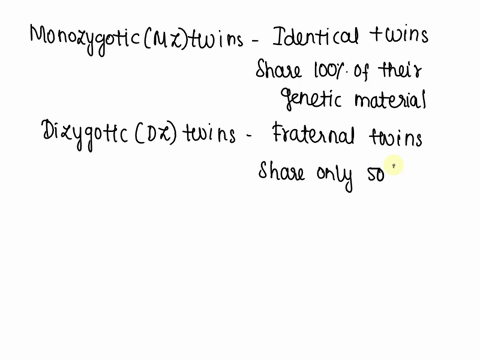 Monozygotic (MZ) twins - Identical twins
Share 100% of their
genetic material
Dizygotic (DZ) twins - Fraternal twins
Share only 50